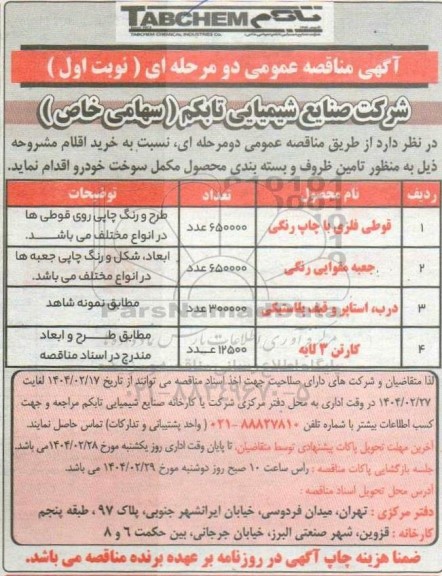 TABCHEM تابکم
TABCHEM CHEMICAL INDUSTRIES CO.
آگهی مناقصه عمومی دو مرحله ای ( نوبت اول )
شرکت صنایع شیمیایی تابکم ( سهامی خاص )
در نظر دارد از طریق مناقصه عمومی دومرحله ای، نسبت به خرید اقلام مشروحه
ذیل به منظور تامین ظروف و بسته بندی محصول مکمل سوخت خودرو اقدام نماید.
ردیف نام محصول تعداد توضیحات
۱ قوطی فلزی با چاپ رنگی ۶۵۰۰۰۰ عدد طرح و رنگ چاپی روی قوطی ها
در انواع مختلف می باشد.
۲ جعبه مقوایی رنگی ۶۵۰۰۰۰ عدد ابعاد، شکل و رنگ چاپی جعبه ها
در انواع مختلف می باشد.
۳ درب، استاپر و قیف پلاستیکی ۳۰۰۰۰۰ عدد مطابق نمونه شاهد
۴ کارتن ۳ لایه ۱۲۵۰۰ عدد مطابق طرح و ابعاد
مندرج در اسناد مناقصه
ParsNamadData
لذا متقاضیان و شرکت های دارای صلاحیت جهت اخذ اسناد مناقصه می توانند از تاریخ ۱۴۰۴/۰۲/۱۷ لغایت
۱۴۰۴/۰۲/۲۷ در وقت اداری به محل دفتر مرکزی شرکت یا کارخانه صنایع شیمیایی تابکم مراجعه و جهت
کسب اطلاعات بیشتر با شماره تلفن ۸۸۸۲۷۸۱۰ -۰۲۱ ( واحد پشتیبانی و تدارکات) تماس حاصل نمایند.
آخرین مهلت تحویل پاکات پیشنهادی توسط متقاضیان: تا پایان وقت اداری روز یکشنبه مورخ ۱۴۰۴/۰۲/۲۸ می باشد.
جلسه بازگشایی پاکات مناقصه : راس ساعت ۱۰ صبح روز دوشنبه مورخ ۱۴۰۴/۰۲/۲۹ می باشد.
آدرس محل تحویل اسناد مناقصه :
دفتر مرکزی : تهران، میدان فردوسی، خیابان ایرانشهر جنوبی، پلاک ۹۷ ، طبقه پنجم
کارخانه : قزوین، شهر صنعتی البرز، خیابان جرجانی، بین حکمت ۶ و ۸
ضمنا هزینه چاپ آگهی در روزنامه بر عهده برنده مناقصه می باشد.